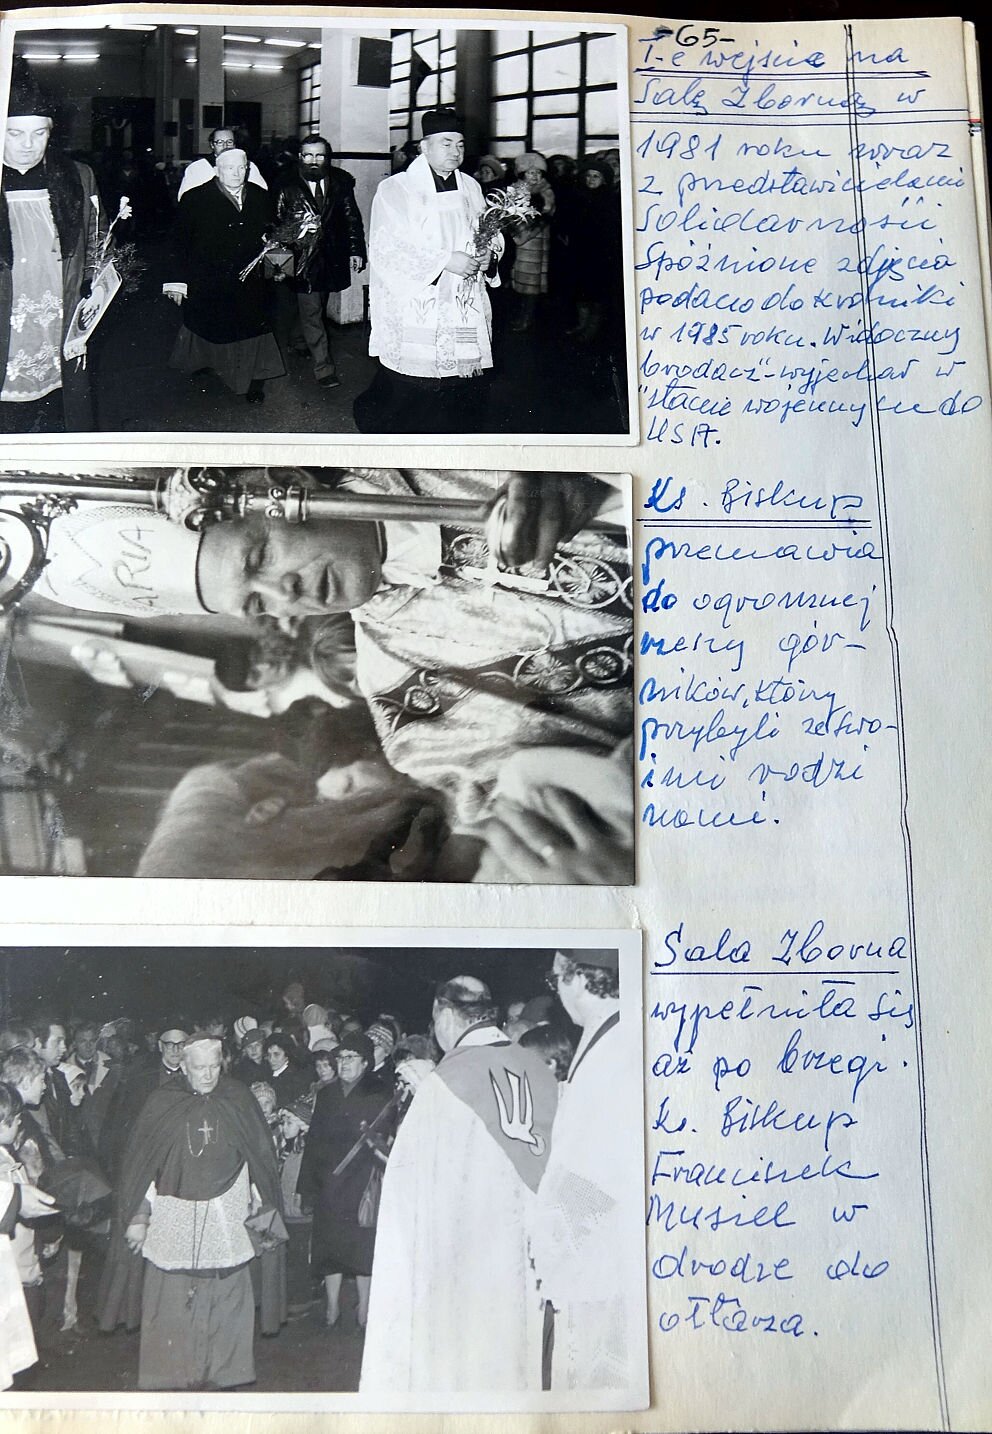 -65-
I-e wejście na
Salę Zborną w
1981 roku wraz
z przedstawicielami
Solidarności
Spóźnione zdjęcia
podano do kroniki
w 1985 roku. Widoczny
brodacz"-wyjechał w
"stanie wojennym do
USA.
MARIA
Ks. Biskup
przemawia
do ogromnej
rzeszy gór-
ników, którzy
przybyli ze swo-
imi rodzi
nami.
Sala Zborna
wypełniła się
aż po brzegi.
Ks. Biskup
Franciszek
Musiel w
drodze do
ołtarza.